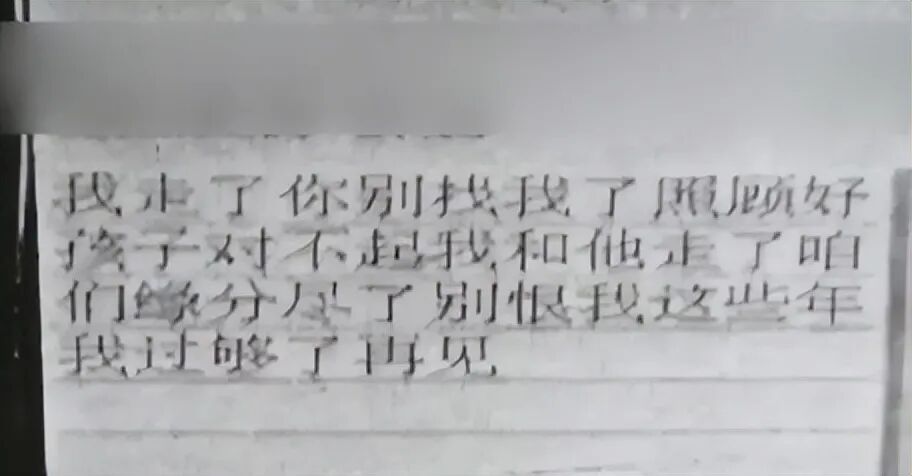 我走了你别找我了照顾好
孩子对不起我和他走了咱
们缘分尽了别恨我这些年
我过够了再见